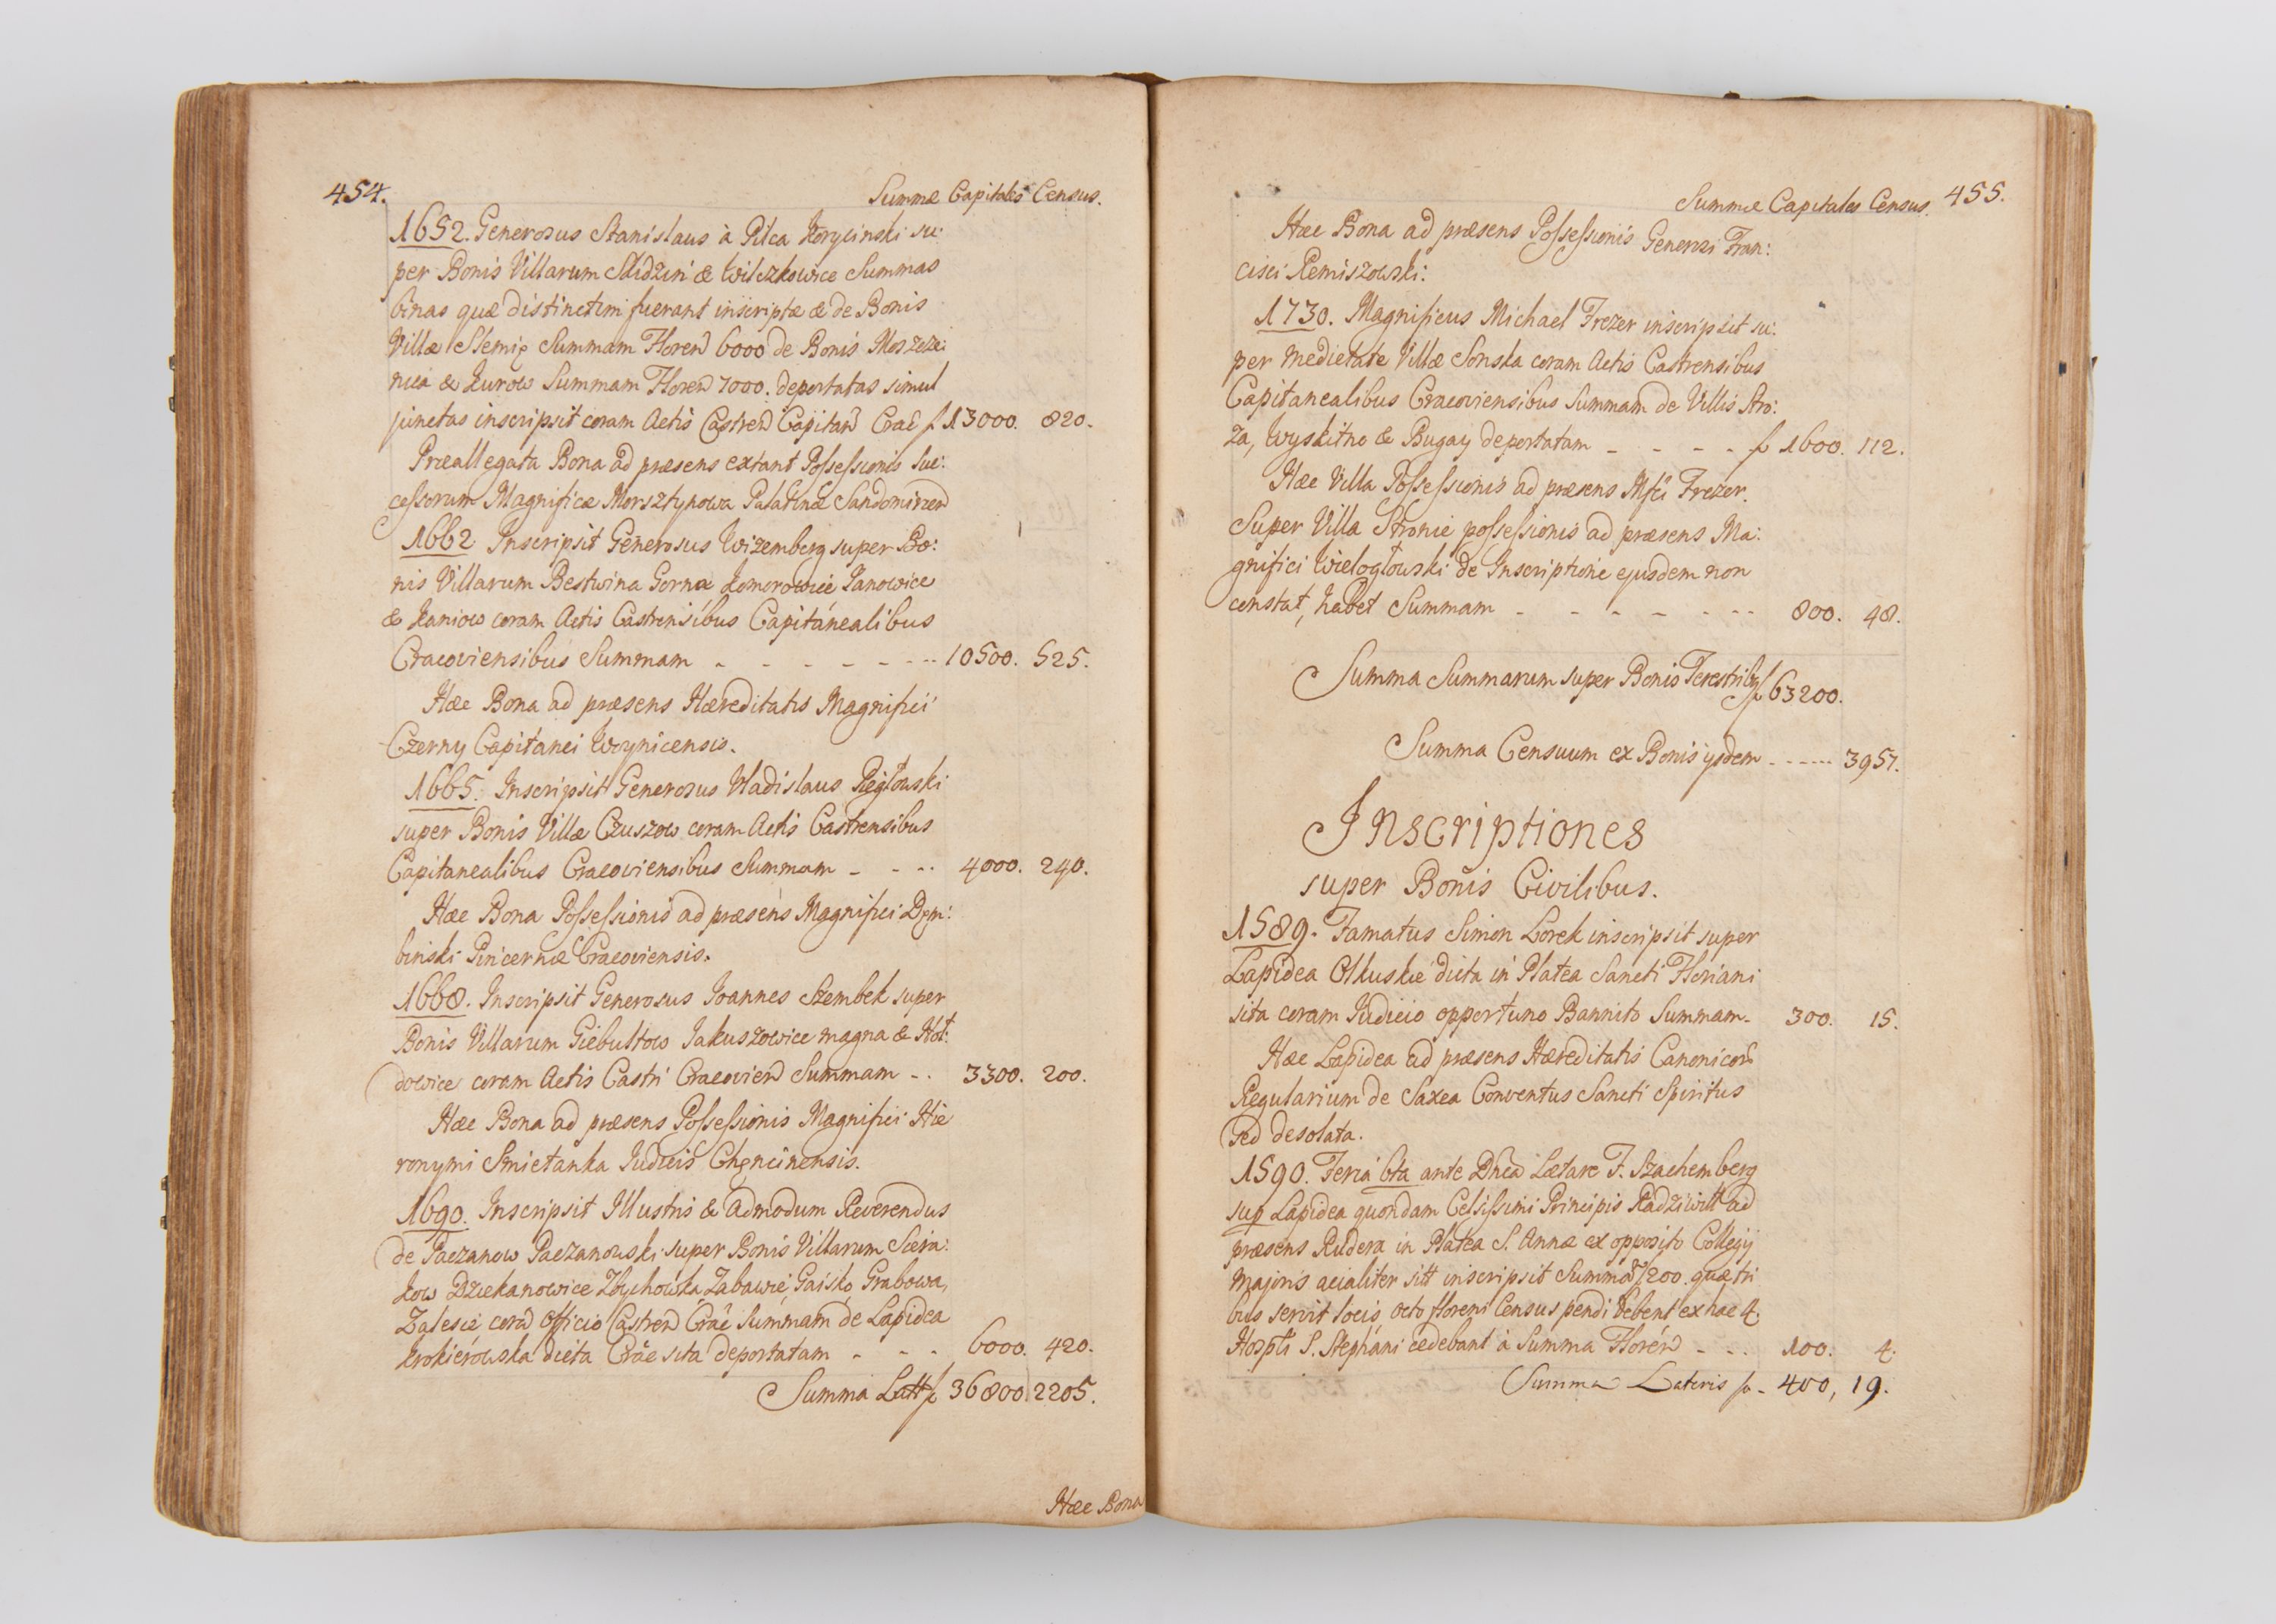 454.
Summæ Capitales Census.
1652. Generosus Stanislaus à Pilca Korycinski su:
per Bonis Villarum Slidzin & Wilczkowice Summas
binas quæ distinctim fuerant inscriptæ & de Bonis
Villæ Slemię Summam Floren 6000 de Bonis Moszcze:
nica & Kurow Summam Floren 7000. deportatas simul
junctas inscripsit coram Actis Castren Capitan Crac f 13000. 820.
Præallegata Bona ad præsens extant Possessionis Suc:
cessorum Magnificæ Morsztynowa Palatinæ Sandomirien
1662 Inscripsit Generosus Wizemberg super Bo:
nis Villarum Bestwina Gorna Komorowice Janowice
& Kaniow coram Actis Castrensibus Capitanealibus
Cracoviensibus Summam - - - - - - - - 10500. 525.
Hæc Bona ad præsens Hæreditatis Magnifici
Czerny Capitanei Woynicensis.
1665. Inscripsit Generosus Vladislaus Regłowski
super Bonis Villæ Czuszow coram Actis Castrensibus
Capitanealibus Cracoviensibus Summam - - - - 4000. 240.
Hæc Bona Possessionis ad præsens Magnifici Dęm:
binski Pincernæ Cracoviensis.
1668. Inscripsit Generosus Joannes Szembek super
Bonis Villarum Giebultow Jakuszowice magna & Hoł:
dowice coram Actis Castri Cracovien Summam - . 3300. 200.
Hæc Bona ad præsens Possessionis Magnifici Hie
ronymi Smietanka Judicis Chęncinensis.
1690. Inscripsit Illustris & Admodum Reverendus
de Paczanow Paczanowski super Bonis Villarum Siera:
kow Dziekanowice Zbychowka Zabawie, Gaisko Grabowa,
Zalesie coram Officio Castren Crac Summam de Lapidea
Krokierowska dicta Crac sita deportatam - - - 6000. 420.
Summa Latt f 36800 2205.
Hæc Bona
Summæ Capitales Census. 455.
Hæc Bona ad præsens Possessionis Generosi Fran:
cisci Remiszowski:
1730. Magnificus Michael Frezer inscripsit su:
per medietate Villæ Sonska coram Actis Castrensibus
Capitanealibus Cracoviensibus Summam de Villis Stro:
za, Wyskitno & Bugay deportatam - - - - f 1600. 112.
Hæc Villa Possessionis ad præsens Mfci Frezer.
Super Villa Stronie possessionis ad præsens Ma:
gnifici Wielogłowski de Inscriptione ejusdem non
constat, habet Summam - - - - - - - 800. 48.
Summa Summarum super Bonis Terestribq f 63200.
Summa Censuum ex Bonis ijsdem - - - - - 3957.
Inscriptiones
super Bonis Civilibus.
1589. Famatus Simon Lorek inscripsit super
Lapidea Olkuskie dicta in Platea Sancti Floriani
sita coram Judicio opportuno Bannito Summam - 300. 15.
Hæc Lapidea ad præsens Hæreditatis Canonicor
Regularium de Saxea Conventus Sancti Spiritus
sed desolata.
1590. Feria 6ta ante Dñca Lætare F. Szachemberg
sup Lapidea quondam Celsissimi Principis Radziwitt ad
præsens Rudera in Platea S. Annæ ex opposito Collegij
Majoris acialiter sitt inscripsit Summa f 200. quæ tri
bus servit locis, octo floreni Census pendi debent ex hac 4.
Hospti S. Stephani cedebant à Summa Floren - - . 100. 4.
Summa Lateris f. - 400, 19.